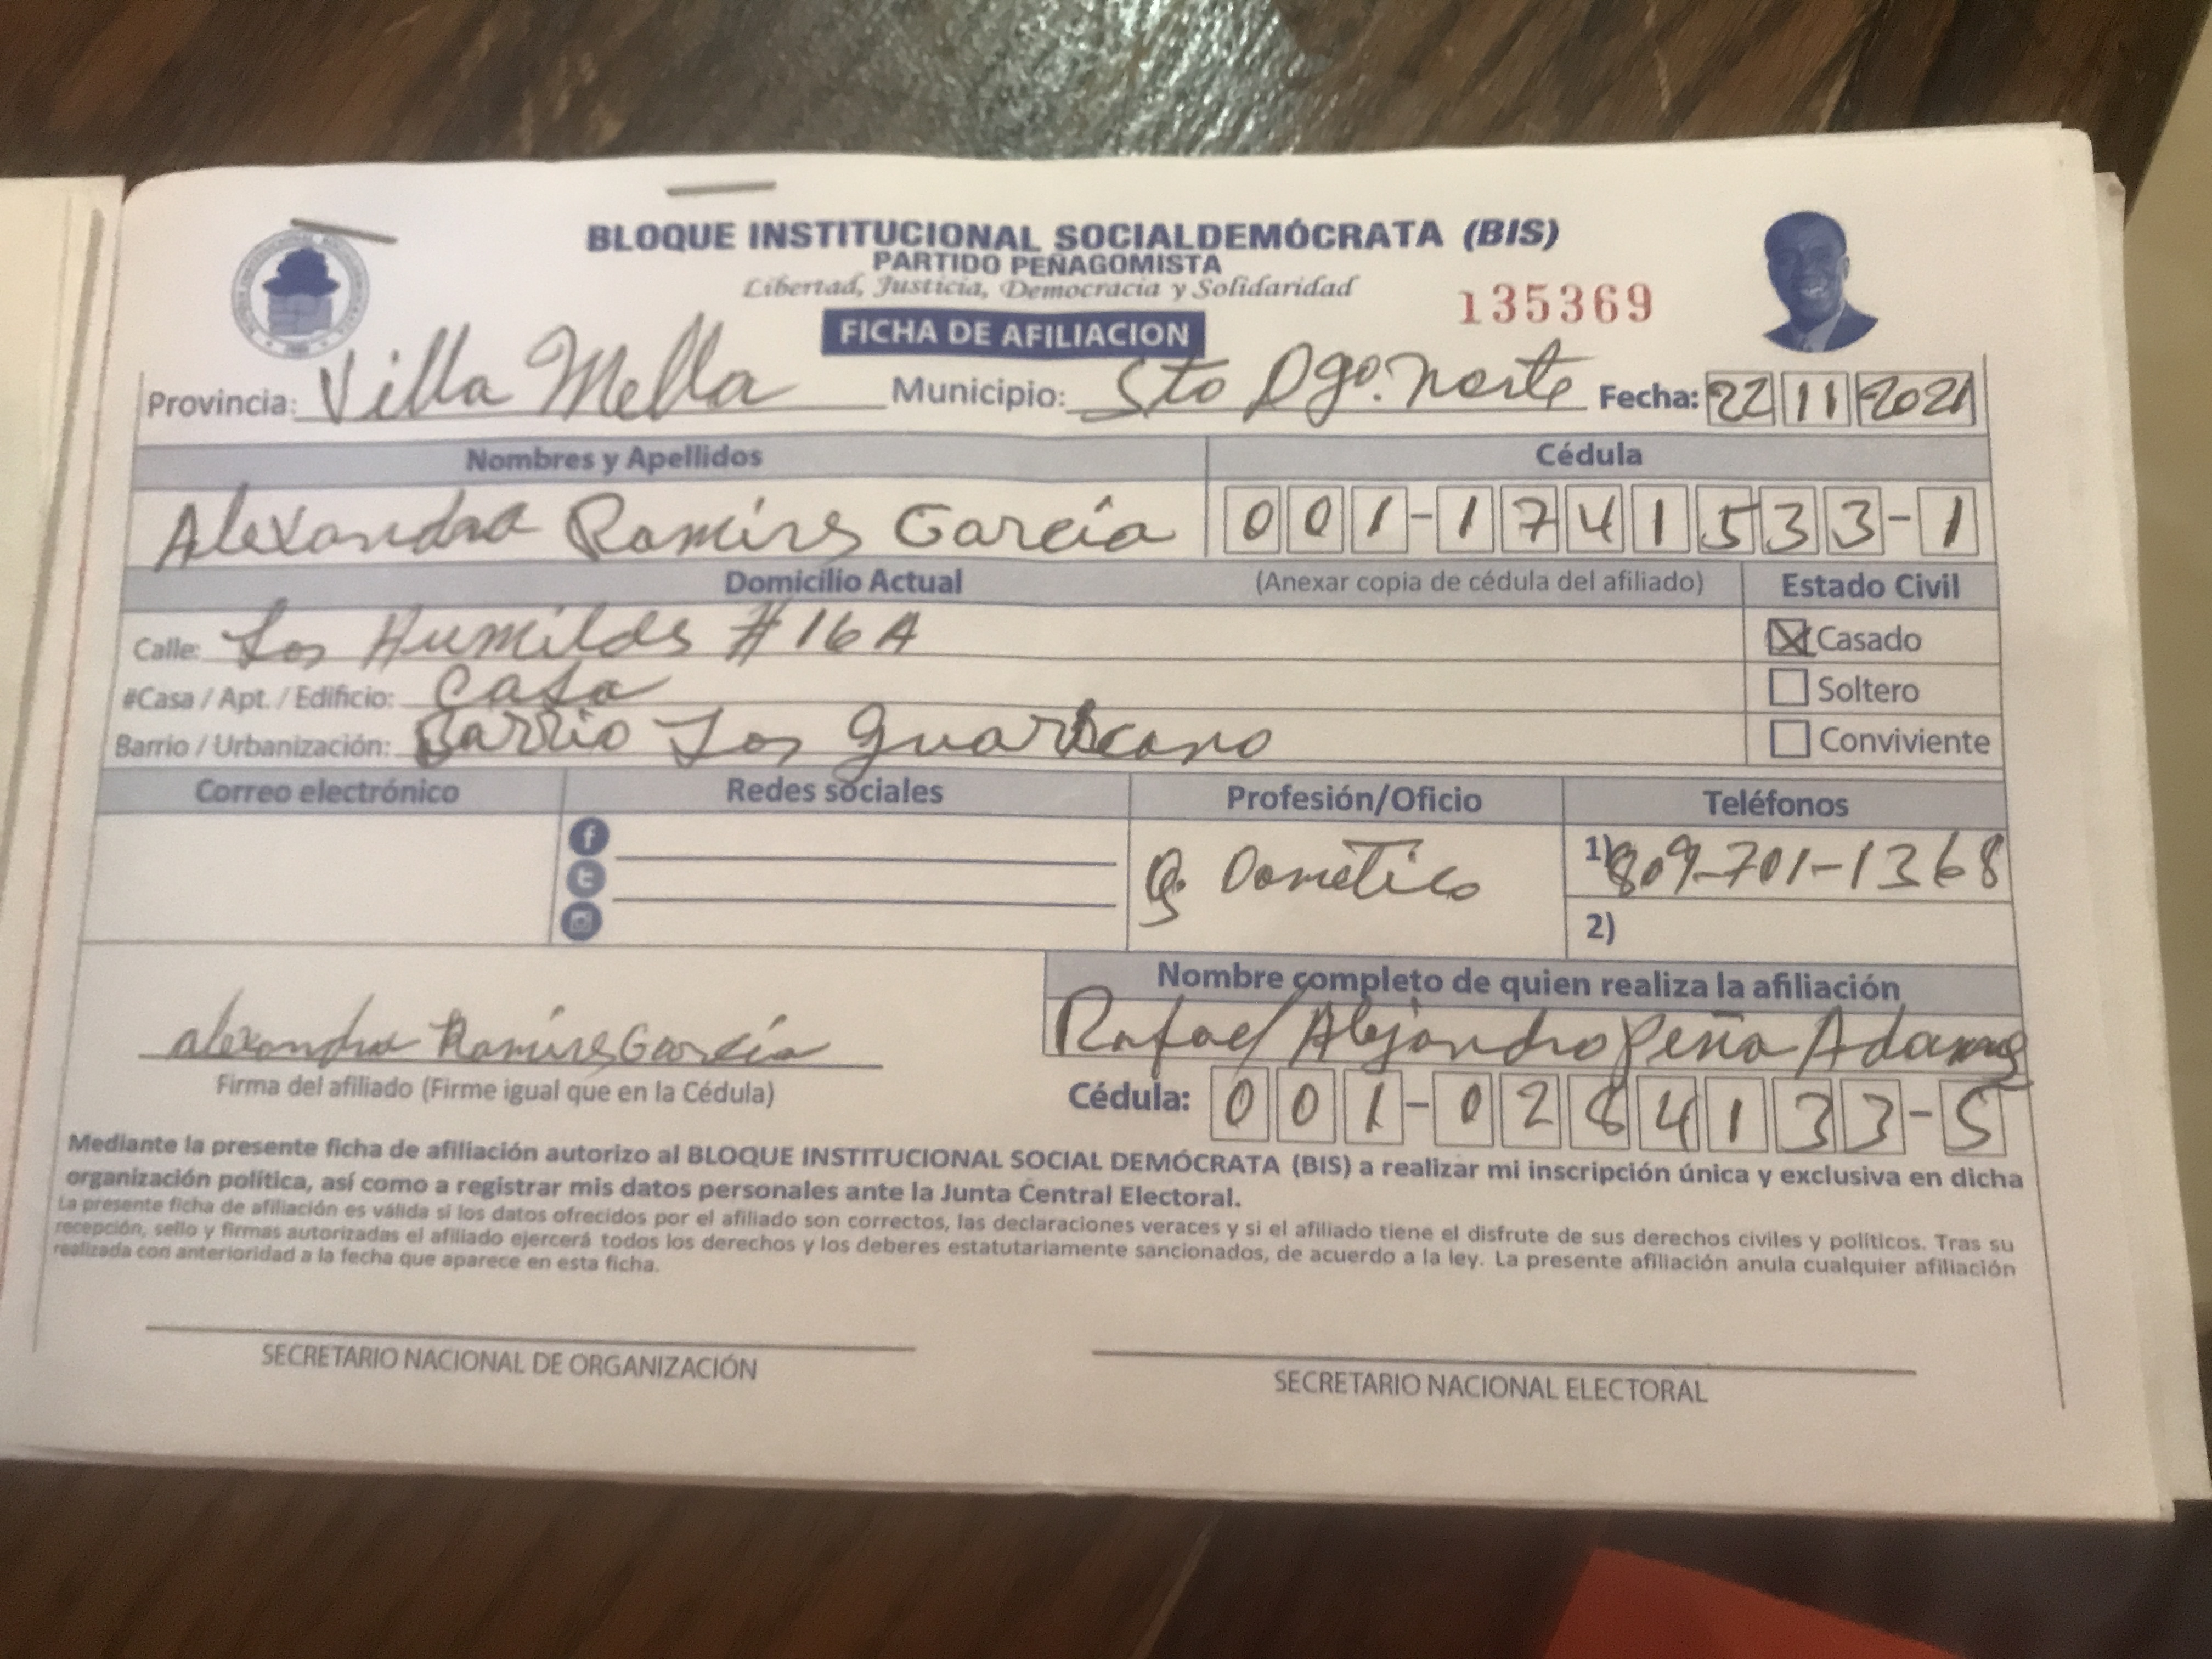 BLOQUE INSTITUCIONAL SOCIALDEMÓCRATA (BIS)
PARTIDO PEÑAGOMISTA
Libertad, Justicia, Democracia y Solidaridad
135369
FICHA DE AFILIACION
Provincia: Villa Mella Municipio: Sto Dgo. Norte Fecha: 22 11 2021
Nombres y Apellidos Cédula
Alexandra Ramirs García 001-1741533-1
Domicilio Actual (Anexar copia de cédula del afiliado) Estado Civil
Calle: Los Humildes #16A Casado
#Casa / Apt. / Edificio: Casa Soltero
Barrio / Urbanización: Barrio Los Guaricano Conviviente
Correo electrónico Redes sociales Profesión/Oficio Teléfonos
Q. Dometico 1) 809-701-1368
2)
Nombre completo de quien realiza la afiliación
alexandra Ramirs García Rafael Alejandro Peña Adames
Firma del afiliado (Firme igual que en la Cédula) Cédula: 001-0284133-5
Mediante la presente ficha de afiliación autorizo al BLOQUE INSTITUCIONAL SOCIAL DEMÓCRATA (BIS) a realizar mi inscripción única y exclusiva en dicha
organización política, así como a registrar mis datos personales ante la Junta Central Electoral.
La presente ficha de afiliación es válida si los datos ofrecidos por el afiliado son correctos, las declaraciones veraces y si el afiliado tiene el disfrute de sus derechos civiles y políticos. Tras su
recepción, sello y firmas autorizadas el afiliado ejercerá todos los derechos y los deberes estatutariamente sancionados, de acuerdo a la ley. La presente afiliación anula cualquier afiliación
realizada con anterioridad a la fecha que aparece en esta ficha.
SECRETARIO NACIONAL DE ORGANIZACIÓN SECRETARIO NACIONAL ELECTORAL